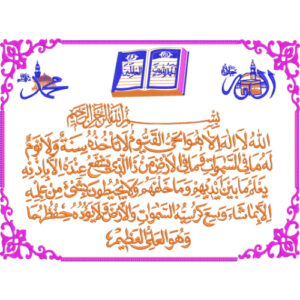 الله
محمد
بسم الله الرحمن الرحيم
الله لا اله الا هو الحي القيوم لا تأخذه سنة ولا نوم
له ما في السموات وما في الارض من ذا الذي يشفع عنده الا باذنه
يعلم ما بين ايديهم وما خلفهم ولا يحيطون بشيء من علمه
الا بما شاء وسع كرسيه السموات والارض ولا يؤده حفظهما
وهو العلي العظيم